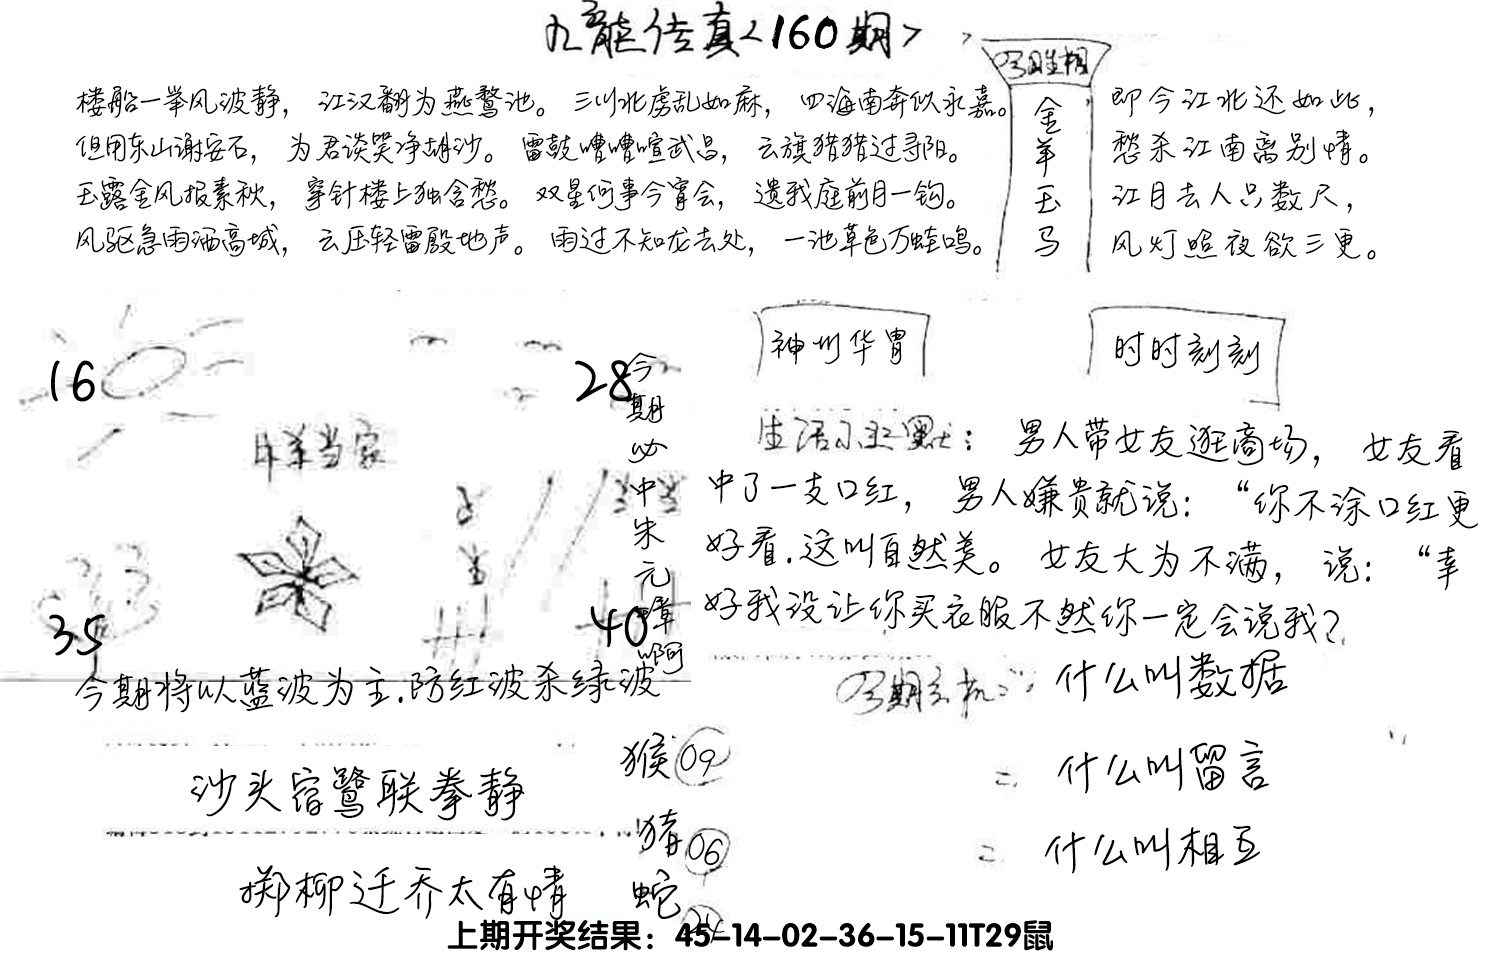 九龙传真<160期>
楼船一举风波静，江汉翻为燕鹜池。三川北虏乱如麻，四海南奔似永嘉。
但用东山谢安石，为君谈笑净胡沙。雷鼓嘈嘈喧武昌，云旗猎猎过寻阳。
玉露金风报素秋，穿针楼上独含愁。双星何事今宵会，遗我庭前月一钩。
风驱急雨洒高城，云压轻雷殷地声。雨过不知龙去处，一池草色万蛙鸣。
今日生相
金羊玉马
即今江北还如此，
愁杀江南离别情。
江月去人只数尺，
风灯照夜欲三更。
16
28
羊当家
35
40
今期必中朱元璋啊
今期将以蓝波为主.防红波杀绿波
神州华胄
时时刻刻
生活小幽默：男人带女友逛商场，女友看
中了一支口红，男人嫌贵就说：“你不涂口红更
好看.这叫自然美。女友大为不满，说：“幸
好我没让你买衣服不然你一定会说我？
今期玄机：什么叫数据
二 什么叫留言
二 什么叫相互
沙头宿鹭联拳静
掷柳迁乔太有情
猴09
猪06
蛇
上期开奖结果：45-14-02-36-15-11T29鼠